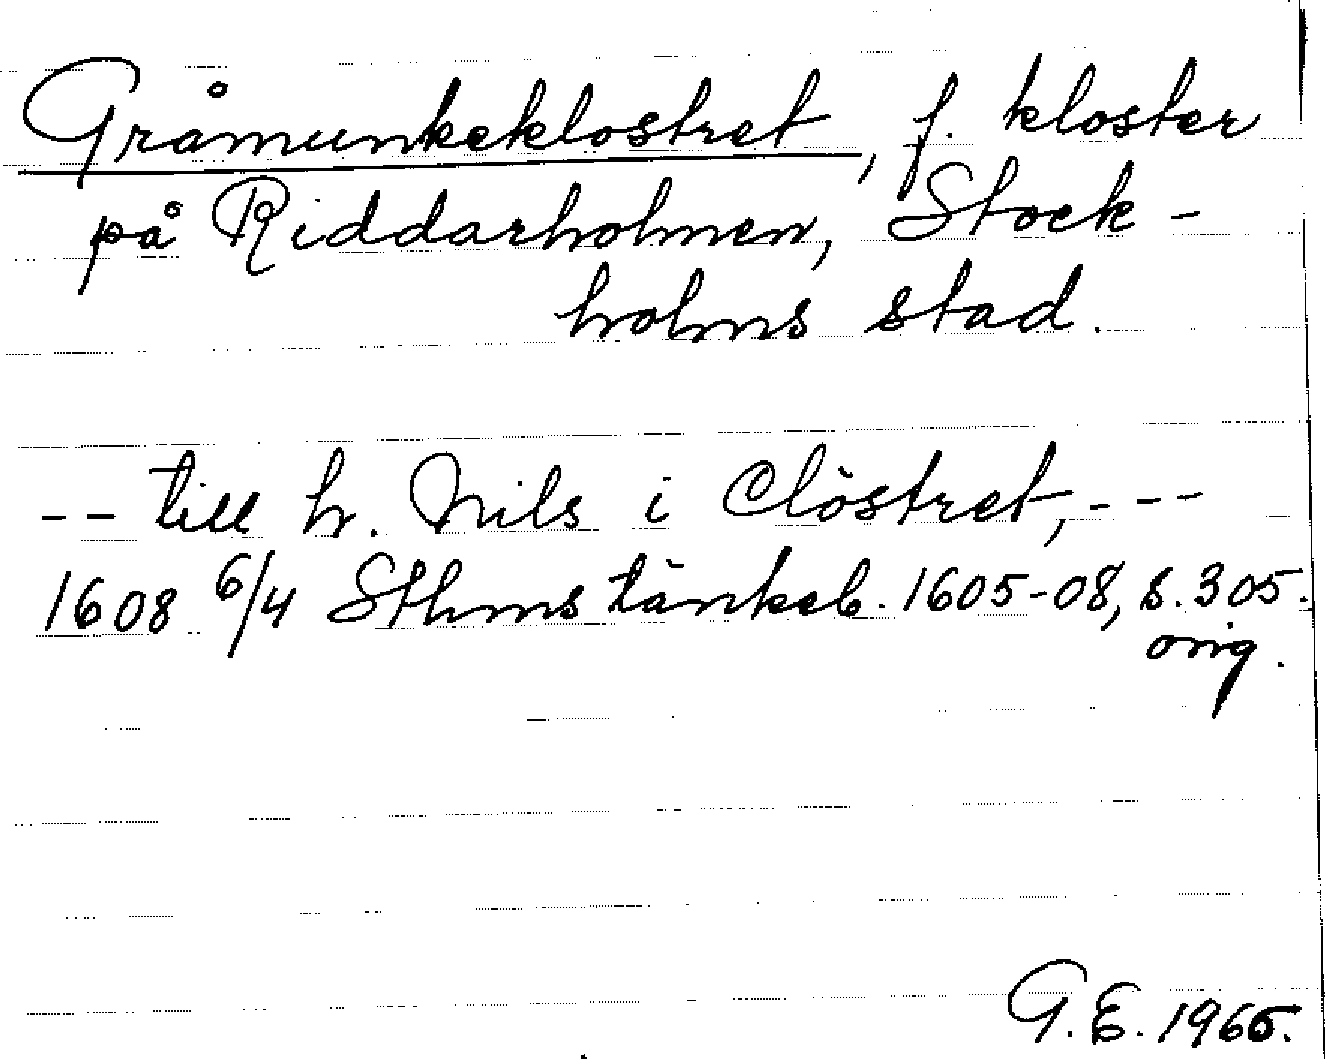 Gråmunkeklostret, f. kloster
på Riddarholmen, Stock-
holms stad.
-- till hr. Nils i Clöstret, ---
1608 6/4 Sthms tänkeb. 1605-08, s. 305.
orig.
G. E. 1965.